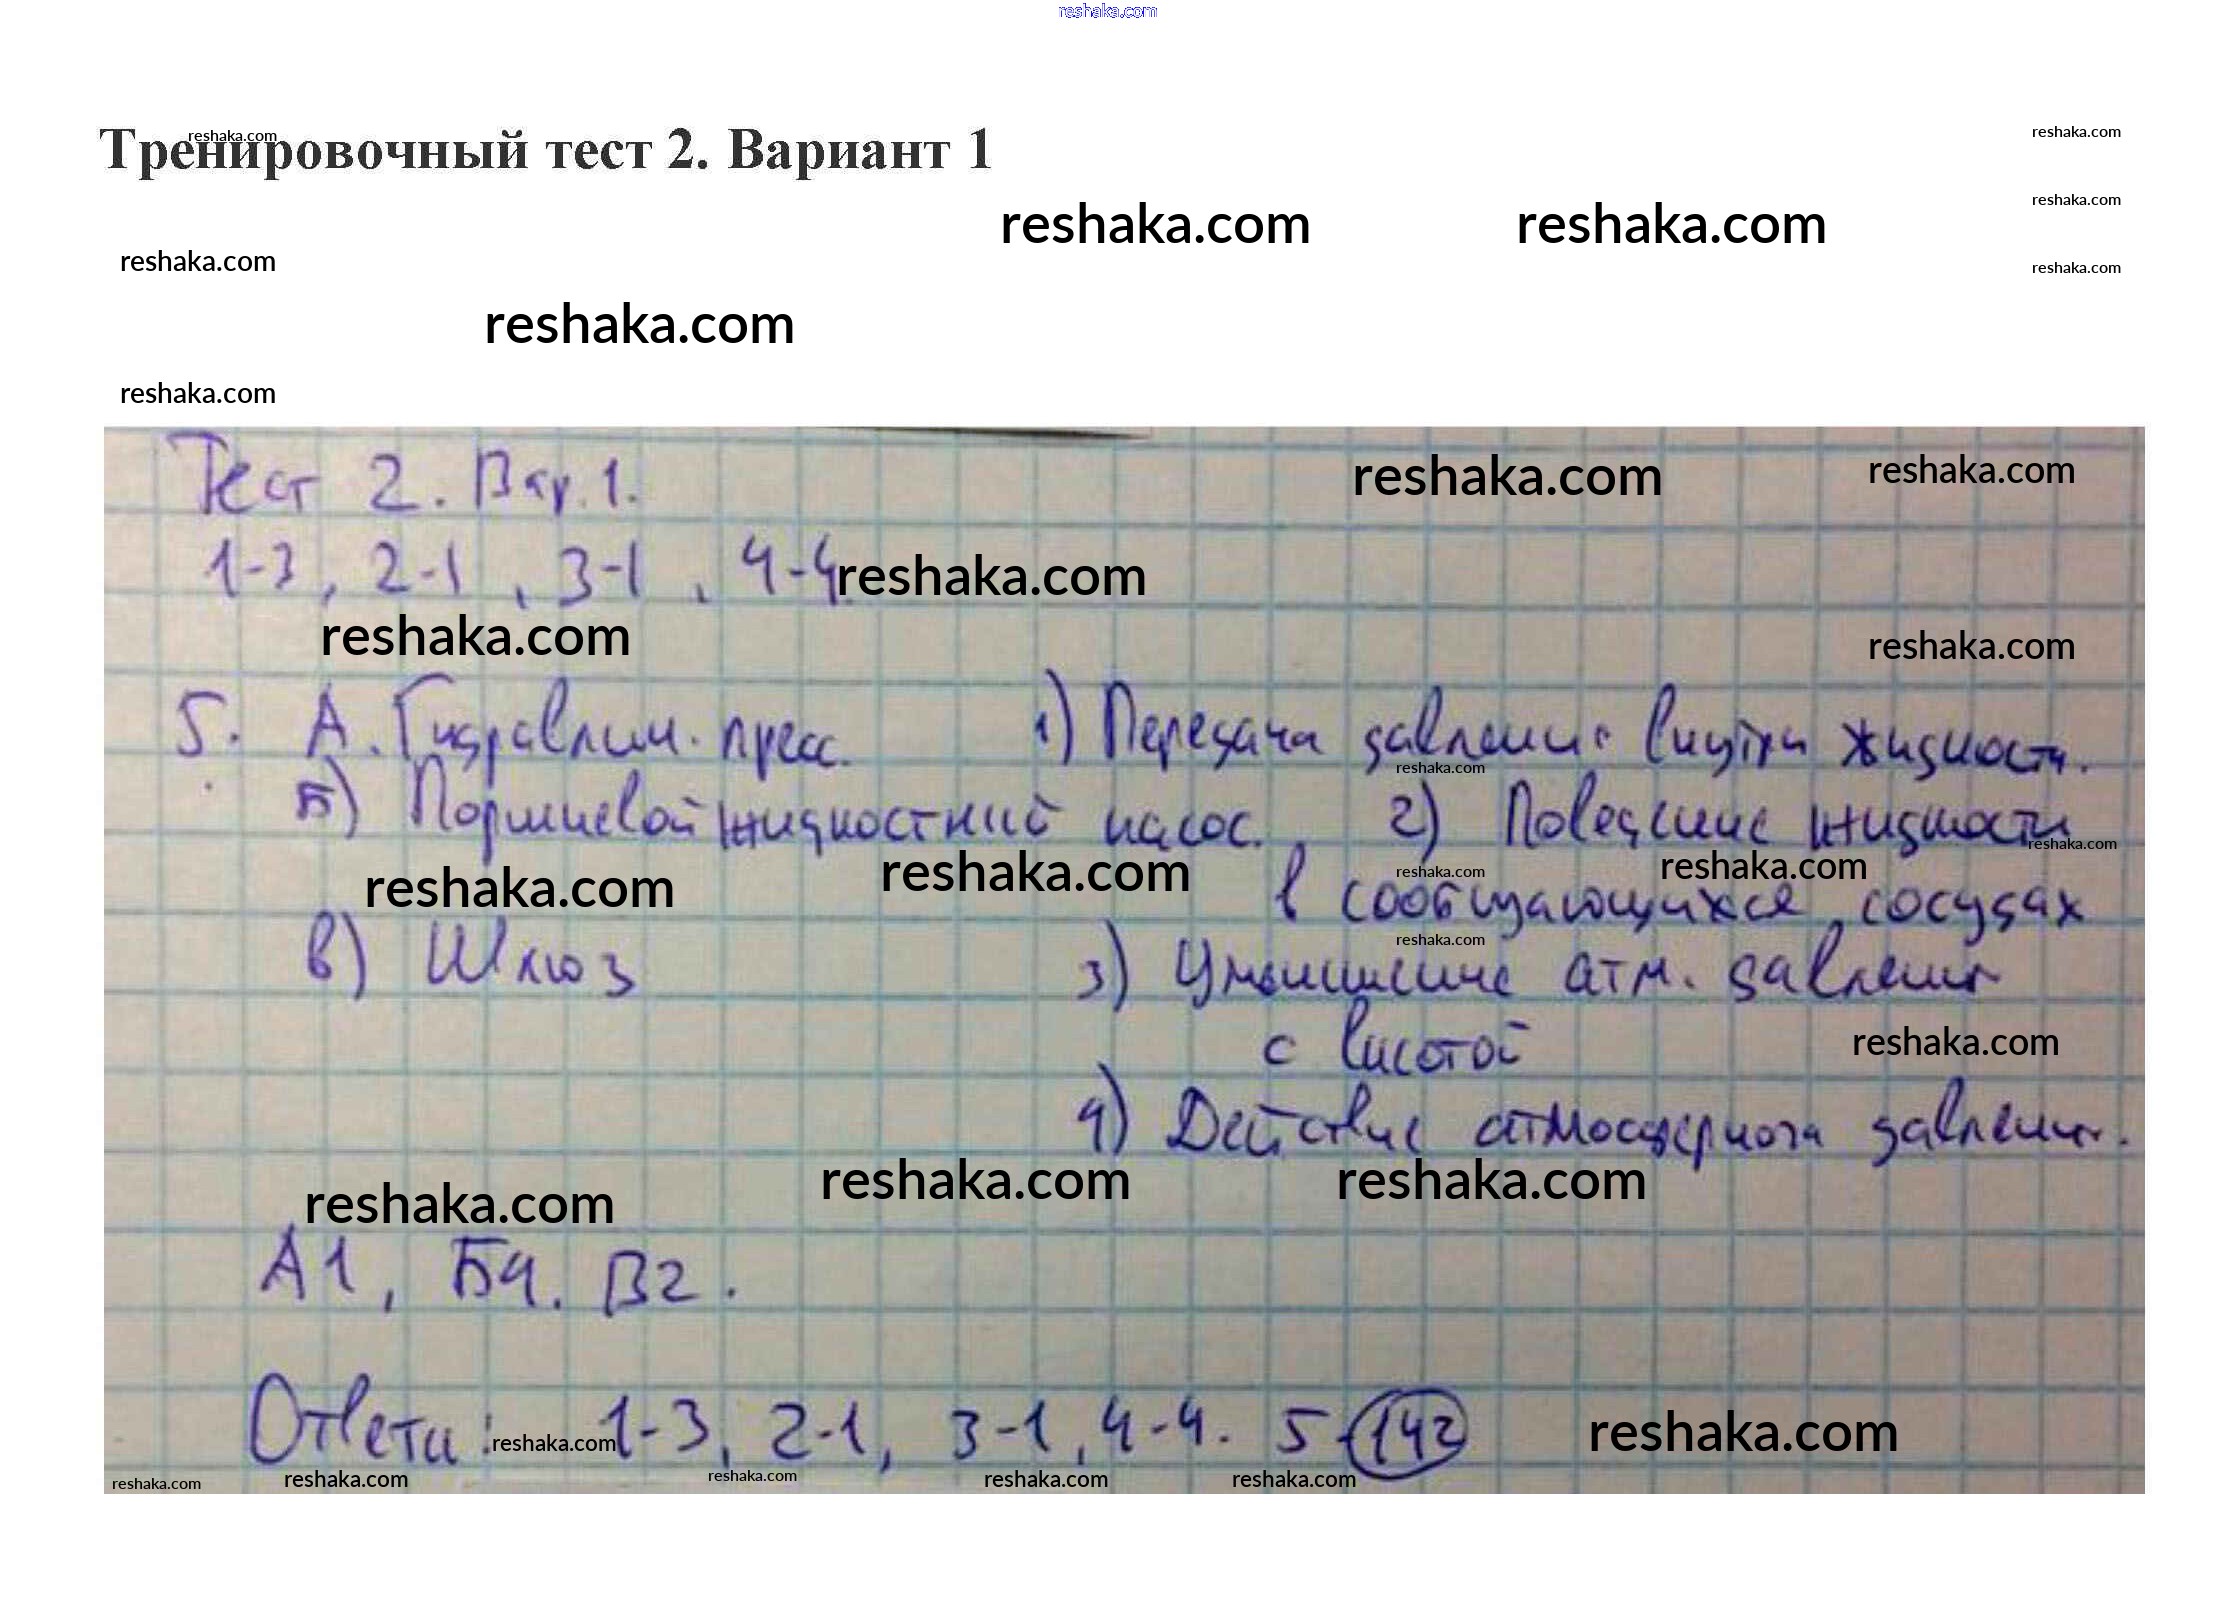 reshaka.com
Тренировочный тест 2. Вариант 1
reshaka.com
reshaka.com
reshaka.com reshaka.com
reshaka.com
reshaka.com
reshaka.com
reshaka.com
reshaka.com
Тест 2. Вар. 1.
reshaka.com reshaka.com
1-3, 2-1, 3-1, 4-4.
reshaka.com
reshaka.com
reshaka.com
5. А. Гидравлич. пресс. 1) Передача давления внутри жидкости.
reshaka.com
Б) Поршневой жидкостный насос. 2) Поведение жидкости
reshaka.com
reshaka.com reshaka.com reshaka.com reshaka.com
в сообщающихся сосудах
reshaka.com
В) Шлюз 3) Уменьшение атм. давления
с высотой
reshaka.com
4) Действие атмосферного давления.
reshaka.com reshaka.com reshaka.com
А1, Б4. В2.
Ответы: 1-3, 2-1, 3-1, 4-4. 5-142
reshaka.com reshaka.com
reshaka.com reshaka.com reshaka.com reshaka.com reshaka.com